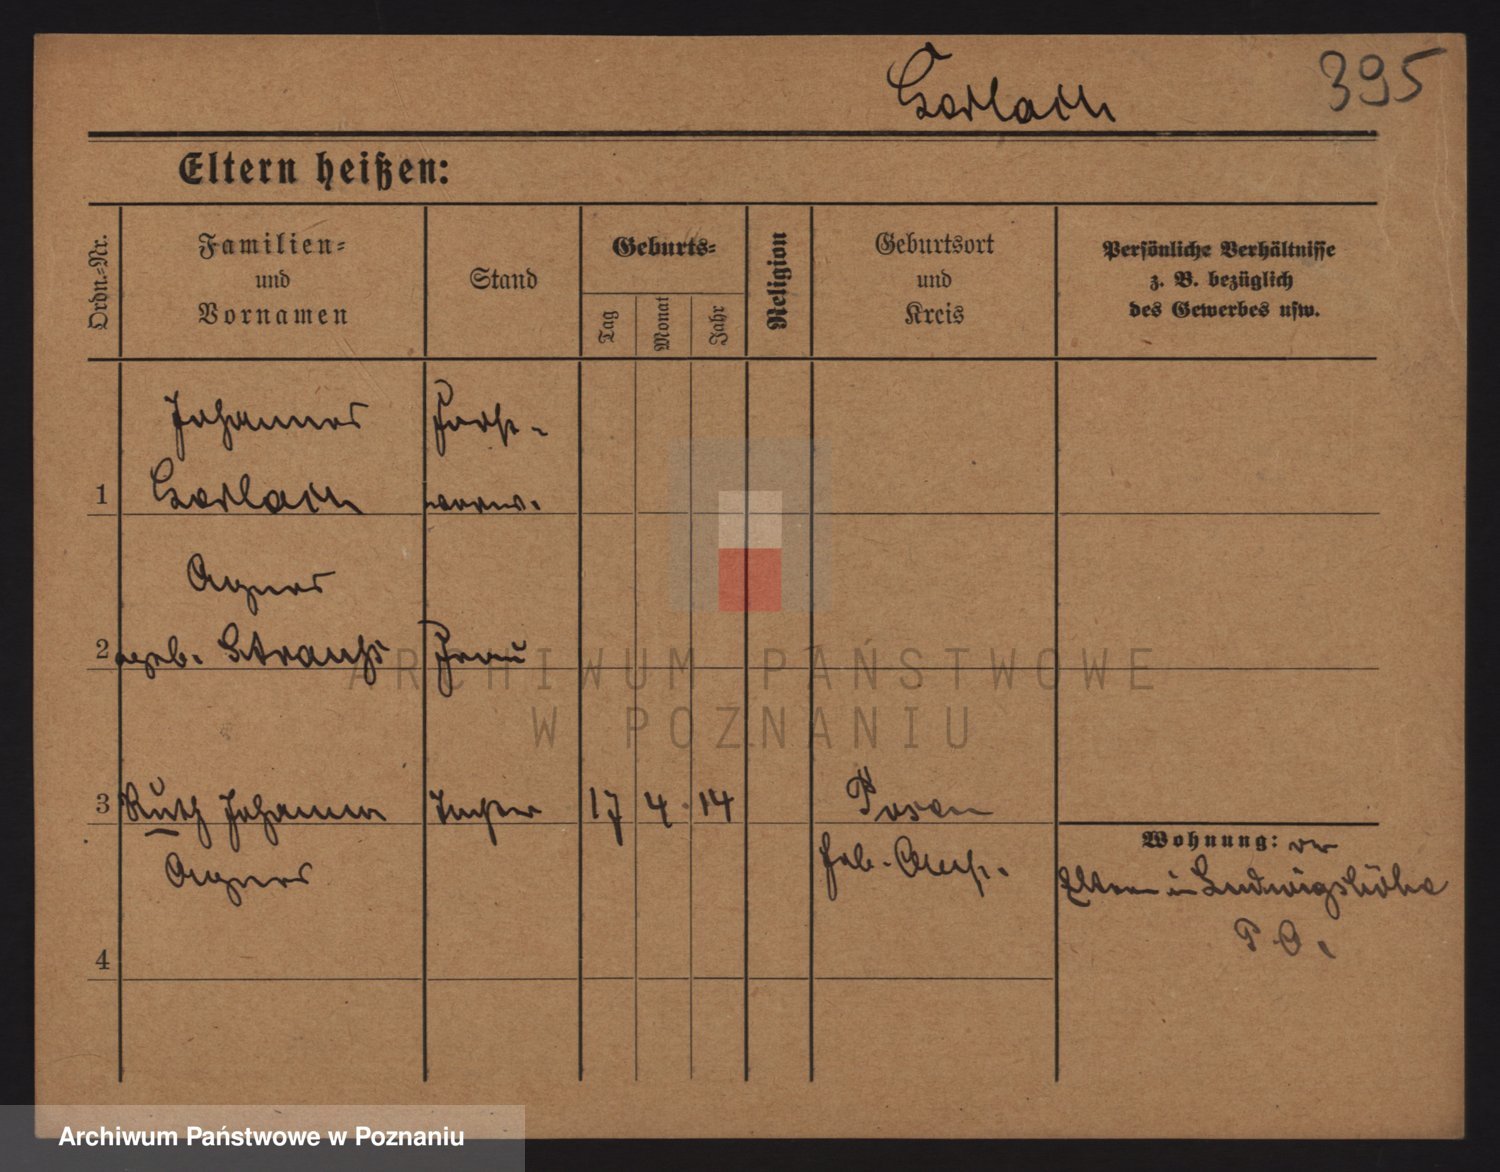 395
Eltern heißen:
Ordn.-Nr.
Familien-
und
Vornamen
Stand
Geburts-
Tag
Monat
Jahr
Religion
Geburtsort
und
Kreis
Persönliche Verhältnisse
z. B. bezüglich
des Gewerbes usw.
Johannes
Forst-
1
2
Agnes
geb.
Frau
3
Ruth Johanna
Tochter
17
4
14
Posen
Agnes
Wohnung: der
Eltern in Ludwigshöhe
P. O.
4
ARCHIWUM PAŃSTWOWE
W POZNANIU
Archiwum Państwowe w Poznaniu